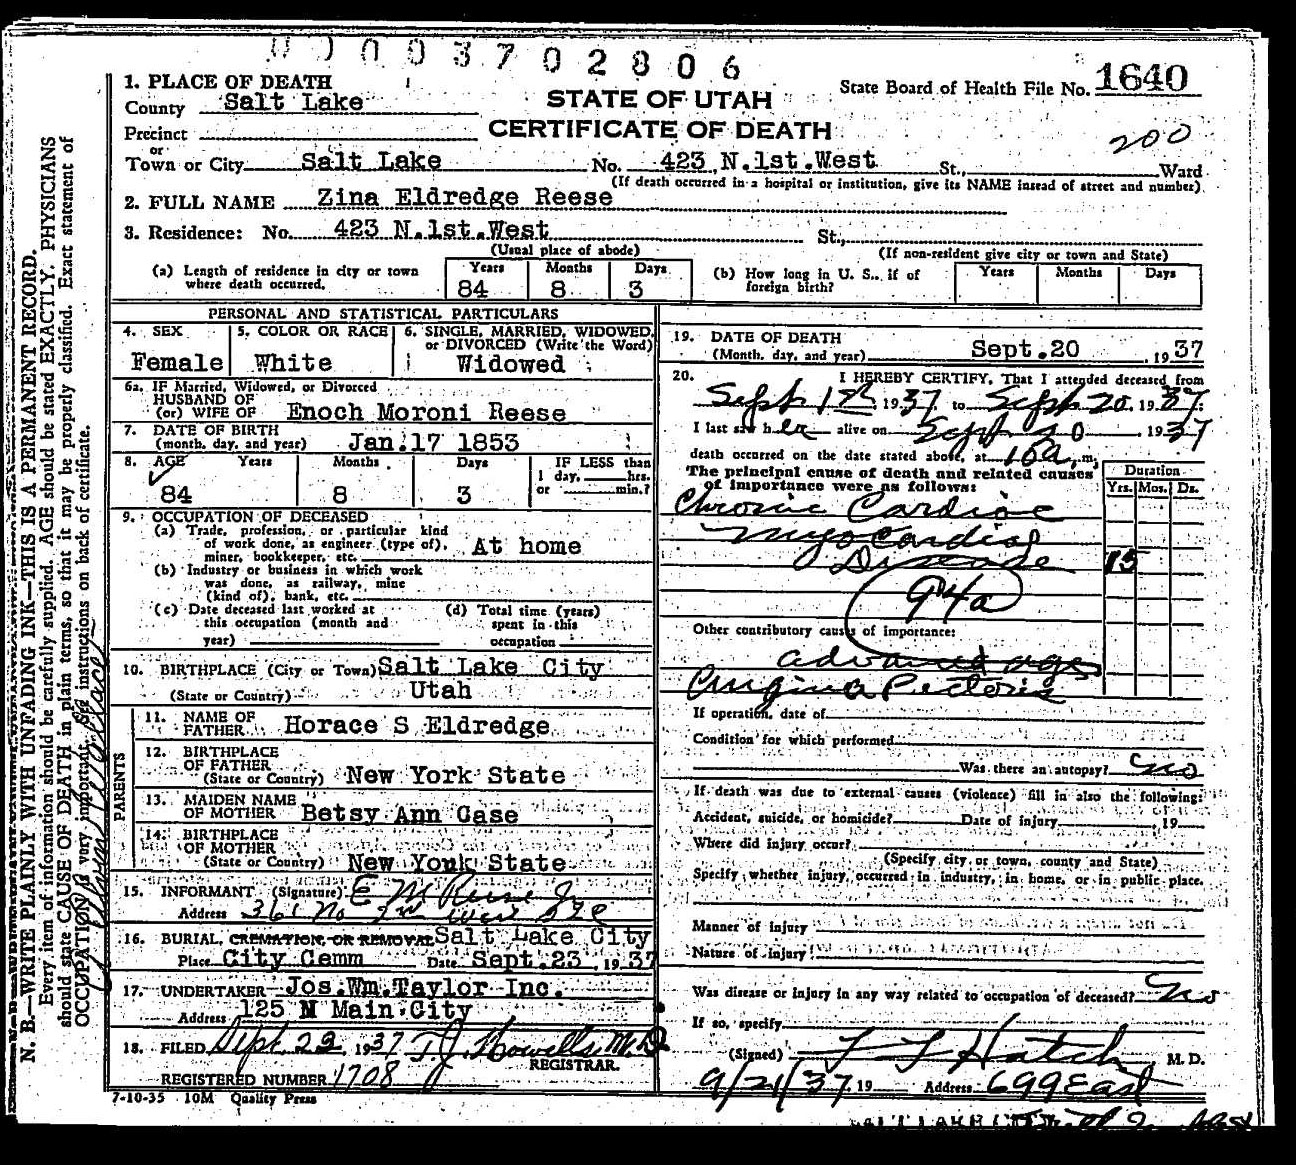 0003702806
1. PLACE OF DEATH
County Salt Lake
STATE OF UTAH
CERTIFICATE OF DEATH
State Board of Health File No. 1640
200
Precinct
or
Town or City Salt Lake No. 423 N.1st.West St., Ward
(If death occurred in a hospital or institution, give its NAME instead of street and number)
2. FULL NAME Zina Eldredge Reese
3. Residence: No. 423 N.1st.West St.,
(Usual place of abode) (If non-resident give city or town and State)
(a) Length of residence in city or town where death occurred. Years 84 Months 8 Days 3
(b) How long in U. S., if of foreign birth? Years Months Days
PERSONAL AND STATISTICAL PARTICULARS
4. SEX Female
5. COLOR OR RACE White
6. SINGLE, MARRIED, WIDOWED, or DIVORCED (Write the Word) Widowed
6a. IF Married, Widowed, or Divorced
HUSBAND OF
(or) WIFE OF Enoch Moroni Reese
7. DATE OF BIRTH
(month, day, and year) Jan.17 1853
8. AGE Years Months Days IF LESS than
1 day, hrs.
or min.?
84 8 3
9. OCCUPATION OF DECEASED
(a) Trade, profession, or particular kind
of work done, as engineer (type of),
miner, bookkeeper, etc. At home
(b) Industry or business in which work
was done, as railway, mine
(kind of), bank, etc.
(c) Date deceased last worked at
this occupation (month and
year)
(d) Total time (years)
spent in this
occupation
10. BIRTHPLACE (City or Town) Salt Lake City
(State or Country) Utah
PARENTS
11. NAME OF
FATHER Horace S Eldredge
12. BIRTHPLACE
OF FATHER
(State or Country) New York State
13. MAIDEN NAME
OF MOTHER Betsy Ann Case
14. BIRTHPLACE
OF MOTHER
(State or Country) New York State
15. INFORMANT (Signature) E M Reese Jr
Address 361 No 3rd West SLC
16. BURIAL, CREMATION, OR REMOVAL Salt Lake City
Place City Cemm Date Sept.23, 1937
17. UNDERTAKER Jos.Wm.Taylor Inc.
Address 125 N Main City
18. FILED Sept. 23 1937 T.J. Howells, M.D.
REGISTRAR.
REGISTERED NUMBER 1708
7-10-35 10M Quality Press
19. DATE OF DEATH
(Month, day, and year) Sept.20, 1937
20. I HEREBY CERTIFY, That I attended deceased from
Sept 1st, 1937 to Sept 20, 1937
I last saw her alive on Sept 20 1937
death occurred on the date stated above, at 10a. m.
The principal cause of death and related causes
of importance were as follows:
Duration
Yrs. Mos. Ds.
Chronic Cardiac
Myocardial
Disease 15
94a
Other contributory causes of importance:
advanced age
Angina Pectoris
If operation, date of
Condition for which performed
Was there an autopsy? no
If death was due to external causes (violence) fill in also the following:
Accident, suicide, or homicide? Date of injury , 19
Where did injury occur?
(Specify city or town, county and State)
Specify whether injury occurred in industry, in home, or in public place.
Manner of injury
Nature of injury
Was disease or injury in any way related to occupation of deceased? no
If so, specify
(Signed) F F Hatch M. D.
9/21/37 19 Address 699 East
N. B.—WRITE PLAINLY WITH UNFADING INK—THIS IS A PERMANENT RECORD.
Every item of information should be carefully supplied. AGE should be stated EXACTLY. PHYSICIANS
should state CAUSE OF DEATH in plain terms, so that it may be properly classified. Exact statement of
OCCUPATION is very important. See instructions on back of certificate.